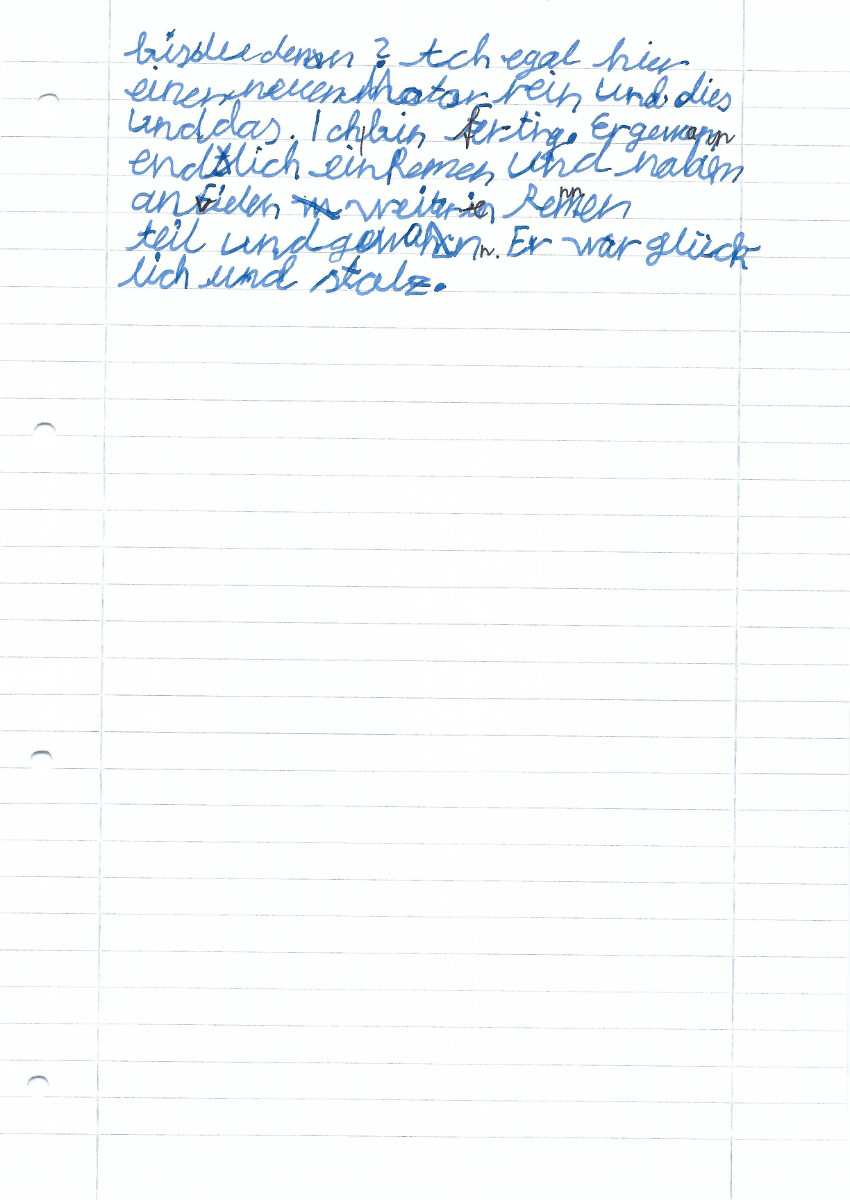 bis du denn? Ach egal hier
einen neuen Motor rein und dies
und das. Ich bin fertig. Er gewann
endlich ein Remen und nahm
an vielen weiteren Rennen
teil und gewann. Er war glück
lich und stolz.